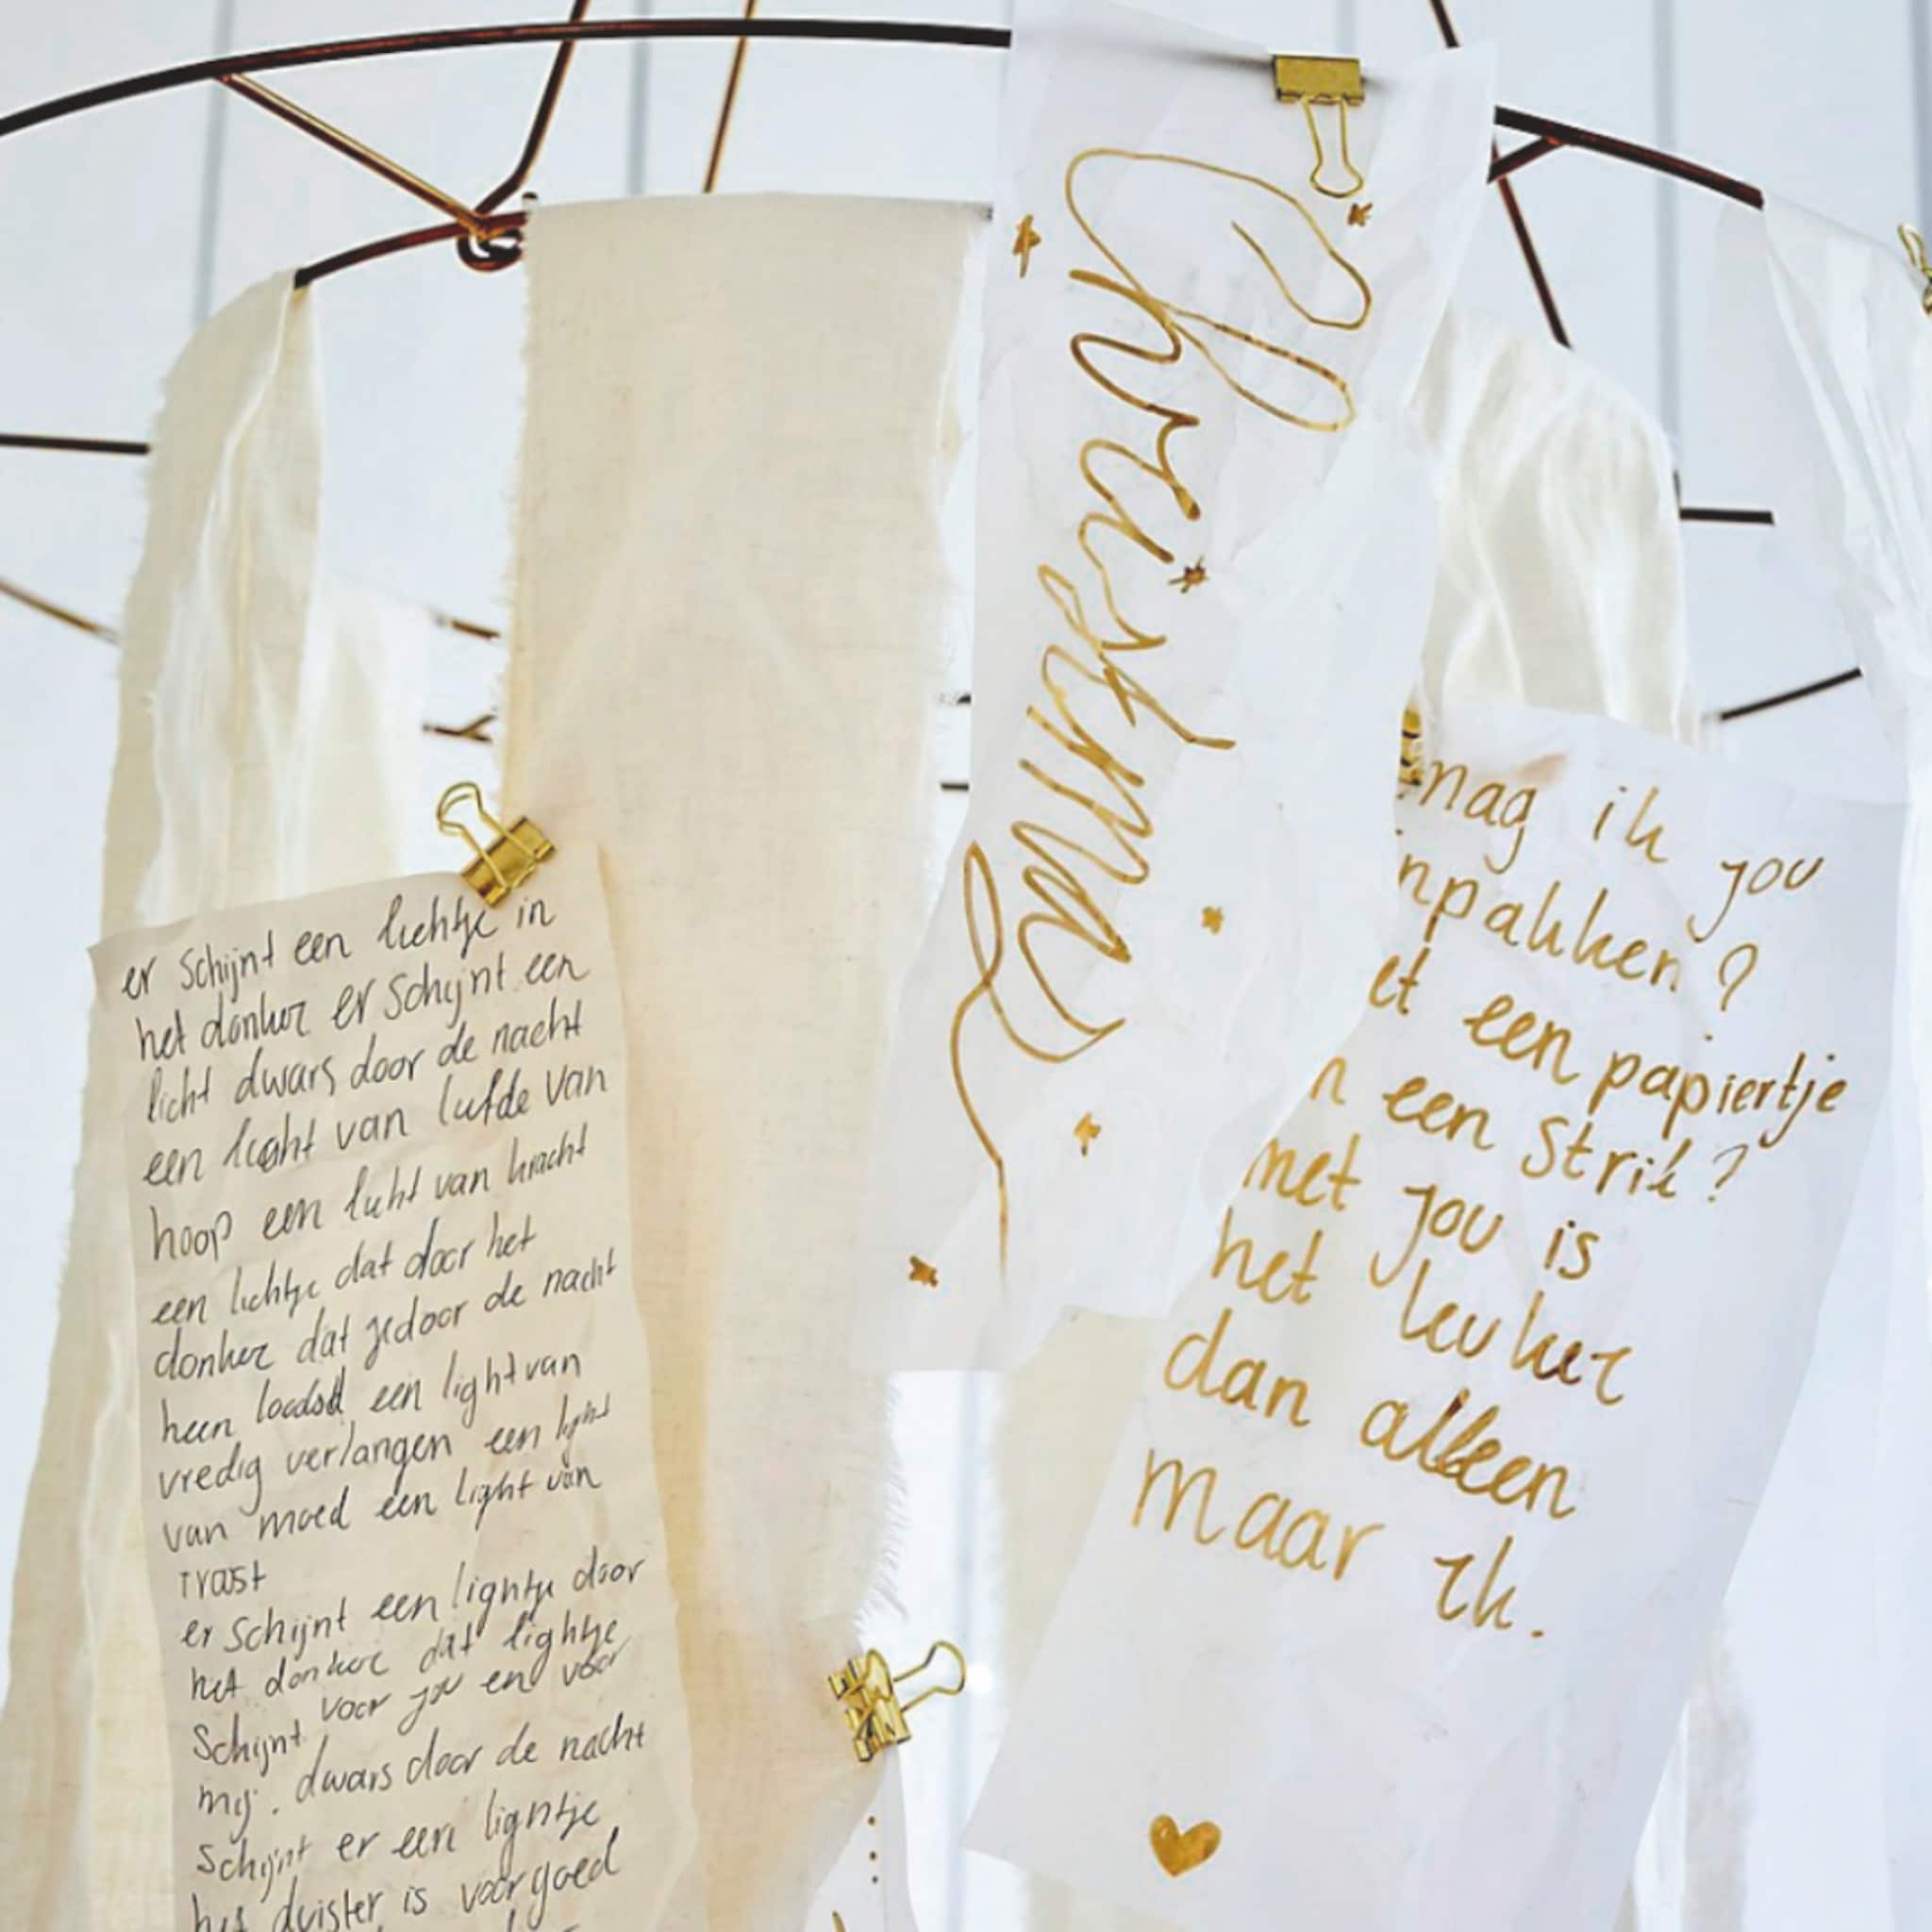 er schijnt een lichtje in
het donker er schijnt een
licht dwars door de nacht
een licht van liefde van
hoop een licht van kracht
een lichtje dat door het
donker dat je door de nacht
heen loodst een light van
vredig verlangen een light
van moed een light van
troost
er schijnt een lightje door
het donker dat lightje
schijnt voor jou en voor
mij. dwars door de nacht
schijnt er een lightje
het duister is voorgoed
Christmas
mag ik jou
inpakken?
et een papiertje
n een strik?
met jou is
het leuker
dan alleen
maar ik.